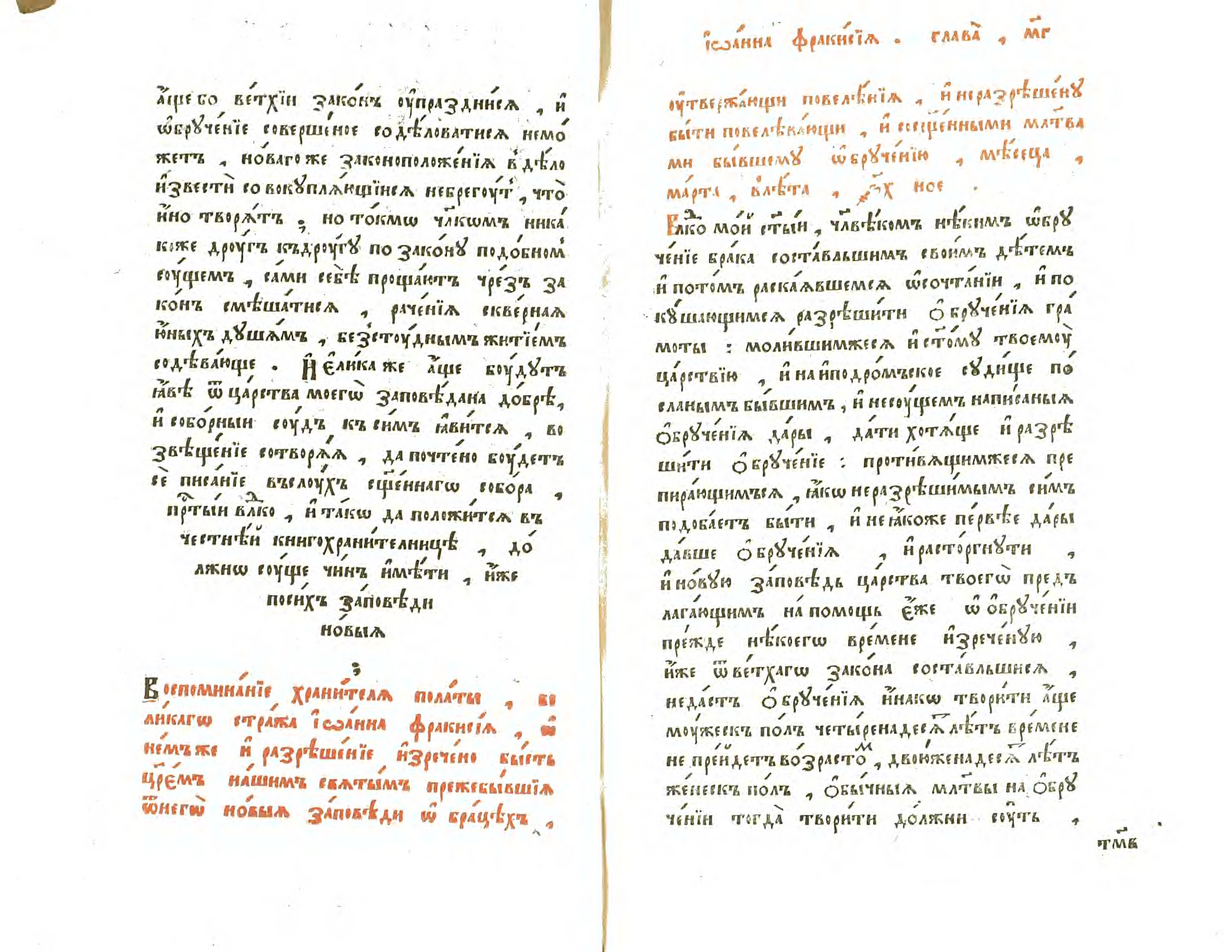 а҆́ще бо ве́тхїи зако́нъ оу҆пра́зднисѧ , и҆
ѡ҆бруче́нїе соверше́ное содѣ́ловатисѧ немо́
жетъ , но́ваго же законоположе́нїѧ в҆дѣ́ло
и҆звестѝ совокуплѧ́ющїисѧ небрегоу́т , что̀
и҆́но творѧ́тъ ; но то́кмѡ чл҃кѡмъ ника́
коже дроу́гъ къдроу́гꙋ по зако́нꙋ подо́бном
соу́щемъ , са́ми себѣ̀ проща́ютъ чре́зъ за
ко́нъ смѣша́тисѧ , раче́нїѧ скве́рнаѧ
ю҆́ныхъ дꙋша́мъ , безстоу́днымъ житїе́мъ
содѣва́юще . И҆ є҆ли́ка же а҆́ще боу́дутъ
ꙗ҆́вѣ ѿ ца́рства моегѡ̀ заповѣ́дана до́брѣ,
и҆ собо́рныи соу́дъ къ си́мъ ꙗ҆ви́тсѧ , во
звѣще́нїе сотворѧ́ѧ , да почте́но боу́детъ
сѐ писа́нїе въслоу́хъ сщ҃е́ннагѡ собо́ра ,
пр҃тыи влⷣко , и҆ та́кѡ да положи́тсѧ въ
честнѣ́й книгохрани́телницѣ , до́
лжнѡ соу́ще чи́нъ и҆мѣ́ти , и҆́же
поси́хъ за́повѣди
но́выѧ
Воспомина́нїе храни́телѧ пола́ты , ве
ли́кагѡ стра́жа і҆ѡа́нна фракисі́ѧ , ѡ҆
не́мъже и҆ разрѣше́нїе и҆зрече́но бы́сть
цр҃е́мъ на́шимъ святы́мъ прежебы́вшїѧ
ѿнегѡ̀ но́выѧ за́повѣди ѡ҆ бра́цѣхъ ,
і҆ѡа́нна фракисі́ѧ . глава̀ , м҃г
оу҆твержа́ющи повелѣ́нїѧ , и҆ неразрѣше́нꙋ
бы́ти повелѣва́ющи , и҆ сосщ҃е́нными мл҃тва
ми бы́вшемꙋ ѡ҆бруче́нїю , мѣ́сеца ,
ма́рта , в҆лѣ́та , ное .
Влⷣко мо́й ст҃ы́и , чл҃вѣ́комъ нѣ́кимъ ѡ҆брꙋ
че́нїе бра́ка соста́вльшимъ свои́мъ дѣ́темъ
и҆ пото́мъ раска́ѧвшемсѧ ѡ҆сочта́нїи , и҆ по
кꙋша́ющимсѧ разрѣши́ти ѻ҆бруче́нїѧ гра́
моты : моли́вшимжесѧ и҆ ст҃о́мꙋ твоемоу̀
ца́рствїю , и҆ на и҆подро́мъское сꙋди́ще по́
сланымъ бы́вшимъ , и҆ несоу́щемъ напи́саныѧ
ѻ҆бруче́нїѧ да́ры , да́ти хотѧ́ще и҆ разрѣ
ши́ти ѻ҆бруче́нїе : проти́вѧщимжесѧ пре
пира́ющимъсѧ , ꙗ҆́кѡ неразрѣши́мымъ си́мъ
подоба́етъ бы́ти , и҆ не ꙗ҆́коже пе́рвѣе да́ры
да́вше ѻ҆бруче́нїѧ , и҆ расто́ргнути ,
и҆ но́вꙋю за́повѣдь ца́рства твоегѡ̀ пред̾
лага́ющимъ на по́мощь є҆́же ѡ҆ ѻ҆бруче́нїи
пре́жде нѣ́коегѡ вре́мене и҆зрече́нꙋю ,
и҆́же ѿ ве́тхагѡ зако́на соста́вльшисѧ ,
неда́стъ ѻ҆бруче́нїѧ и҆́накѡ твори́ти а҆́ще
моу́жескъ по́лъ четы́ренадесѧ лѣ́тъ вре́мене
не пре́йдетъ во́зрасто́мъ , двою́женадесѧ лѣ́тъ
же́нескъ по́лъ , ѻ҆бы́чныѧ мл҃твы на ѻ҆брꙋ
че́нїи тогда̀ твори́ти до́лжни соу́ть ,
тм҃в